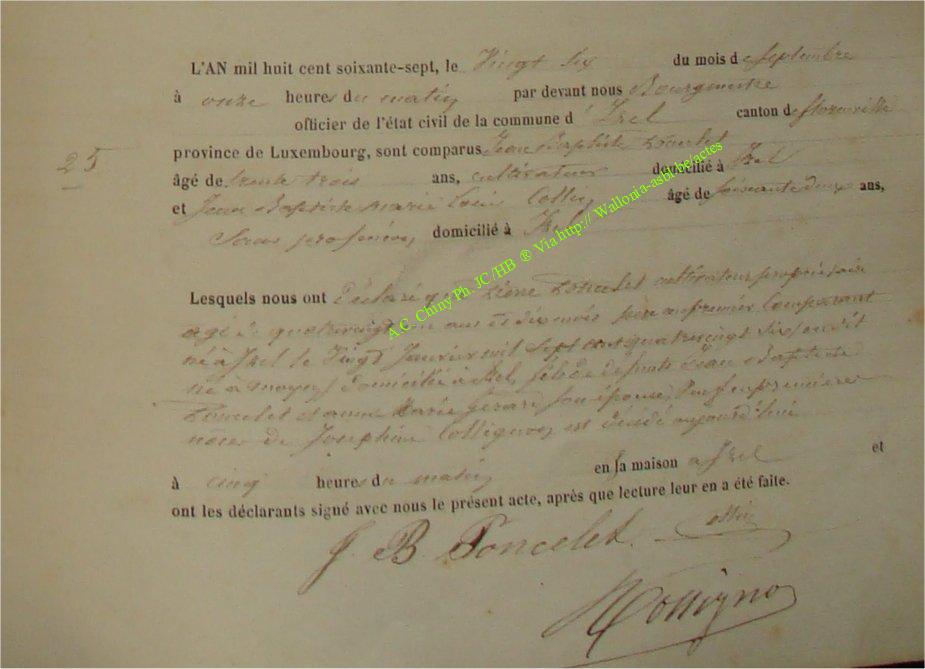 L'AN mil huit cent soixante-sept, le Vingt Six du mois de Septembre
à onze heures du matin par devant nous Bourgmestre
officier de l'état civil de la commune d'Izel canton de florenville
25
province de Luxembourg, sont comparus Jean Baptiste Poncelet
âgé de trente trois ans, cultivateur domicilié à Izel
et Jean Baptiste Marie Louis Collin âgé de soixante deux ans,
Sans domicilié à Izel
A.C. Chiny Ph. JC/HB ® Via http:// Wallonia-asbl.be/actes
Lesquels nous ont déclaré que Pierre Poncelet cultivateur propriétaire
agé de quatrevingt un ans et dix mois père au premier Comparant
né à Izel le Vingt Janvier mil Sept cent quatrevingt Six, on dit
né a moyen, domicilié à Izel, fils de Jean Baptiste
Poncelet et anne Marie Gérard, son épouse, Veuf en premières
noces de Joséphine Collignon est décédé aujourd'hui
à cinq heures du matin en sa maison a Izel et
ont les déclarants signé avec nous le présent acte, après que lecture leur en a été faite.
J. B. Poncelet Collin